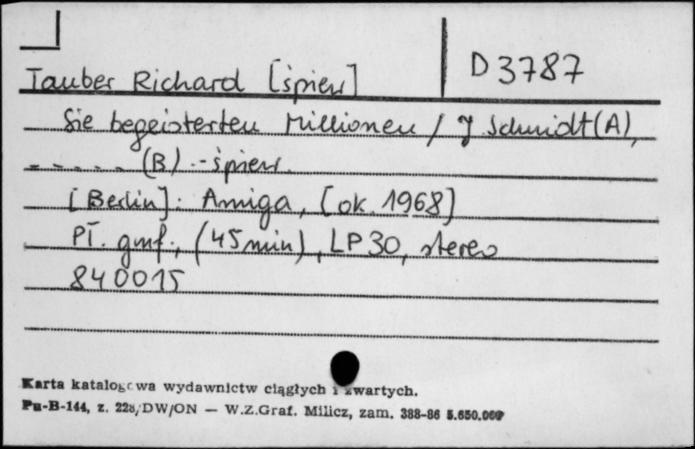 D 3787
Tauber Richard [śpiew]
Sie begeisterten Millionen / J Schmidt (A),
- - - - - (B) .- śpiew.
[Berlin]: Amiga, [ok. 1968]
Pł. gmf., (45 min), LP 30, stereo
840015
Karta katalogowa wydawnictw ciągłych i zwartych.
Pu-B-144, z. 228/DW/ON — W.Z.Graf. Milicz, zam. 388-86 5.650.000